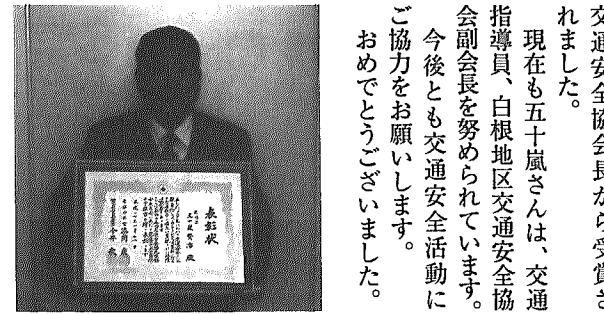 交通安全協会長から受賞さ
れました。
現在も五十嵐さんは、交通
指導員、白根地区交通安全協
会副会長を努められています。
今後とも交通安全活動に
ご協力をお願いします。
おめでとうございました。
表彰状